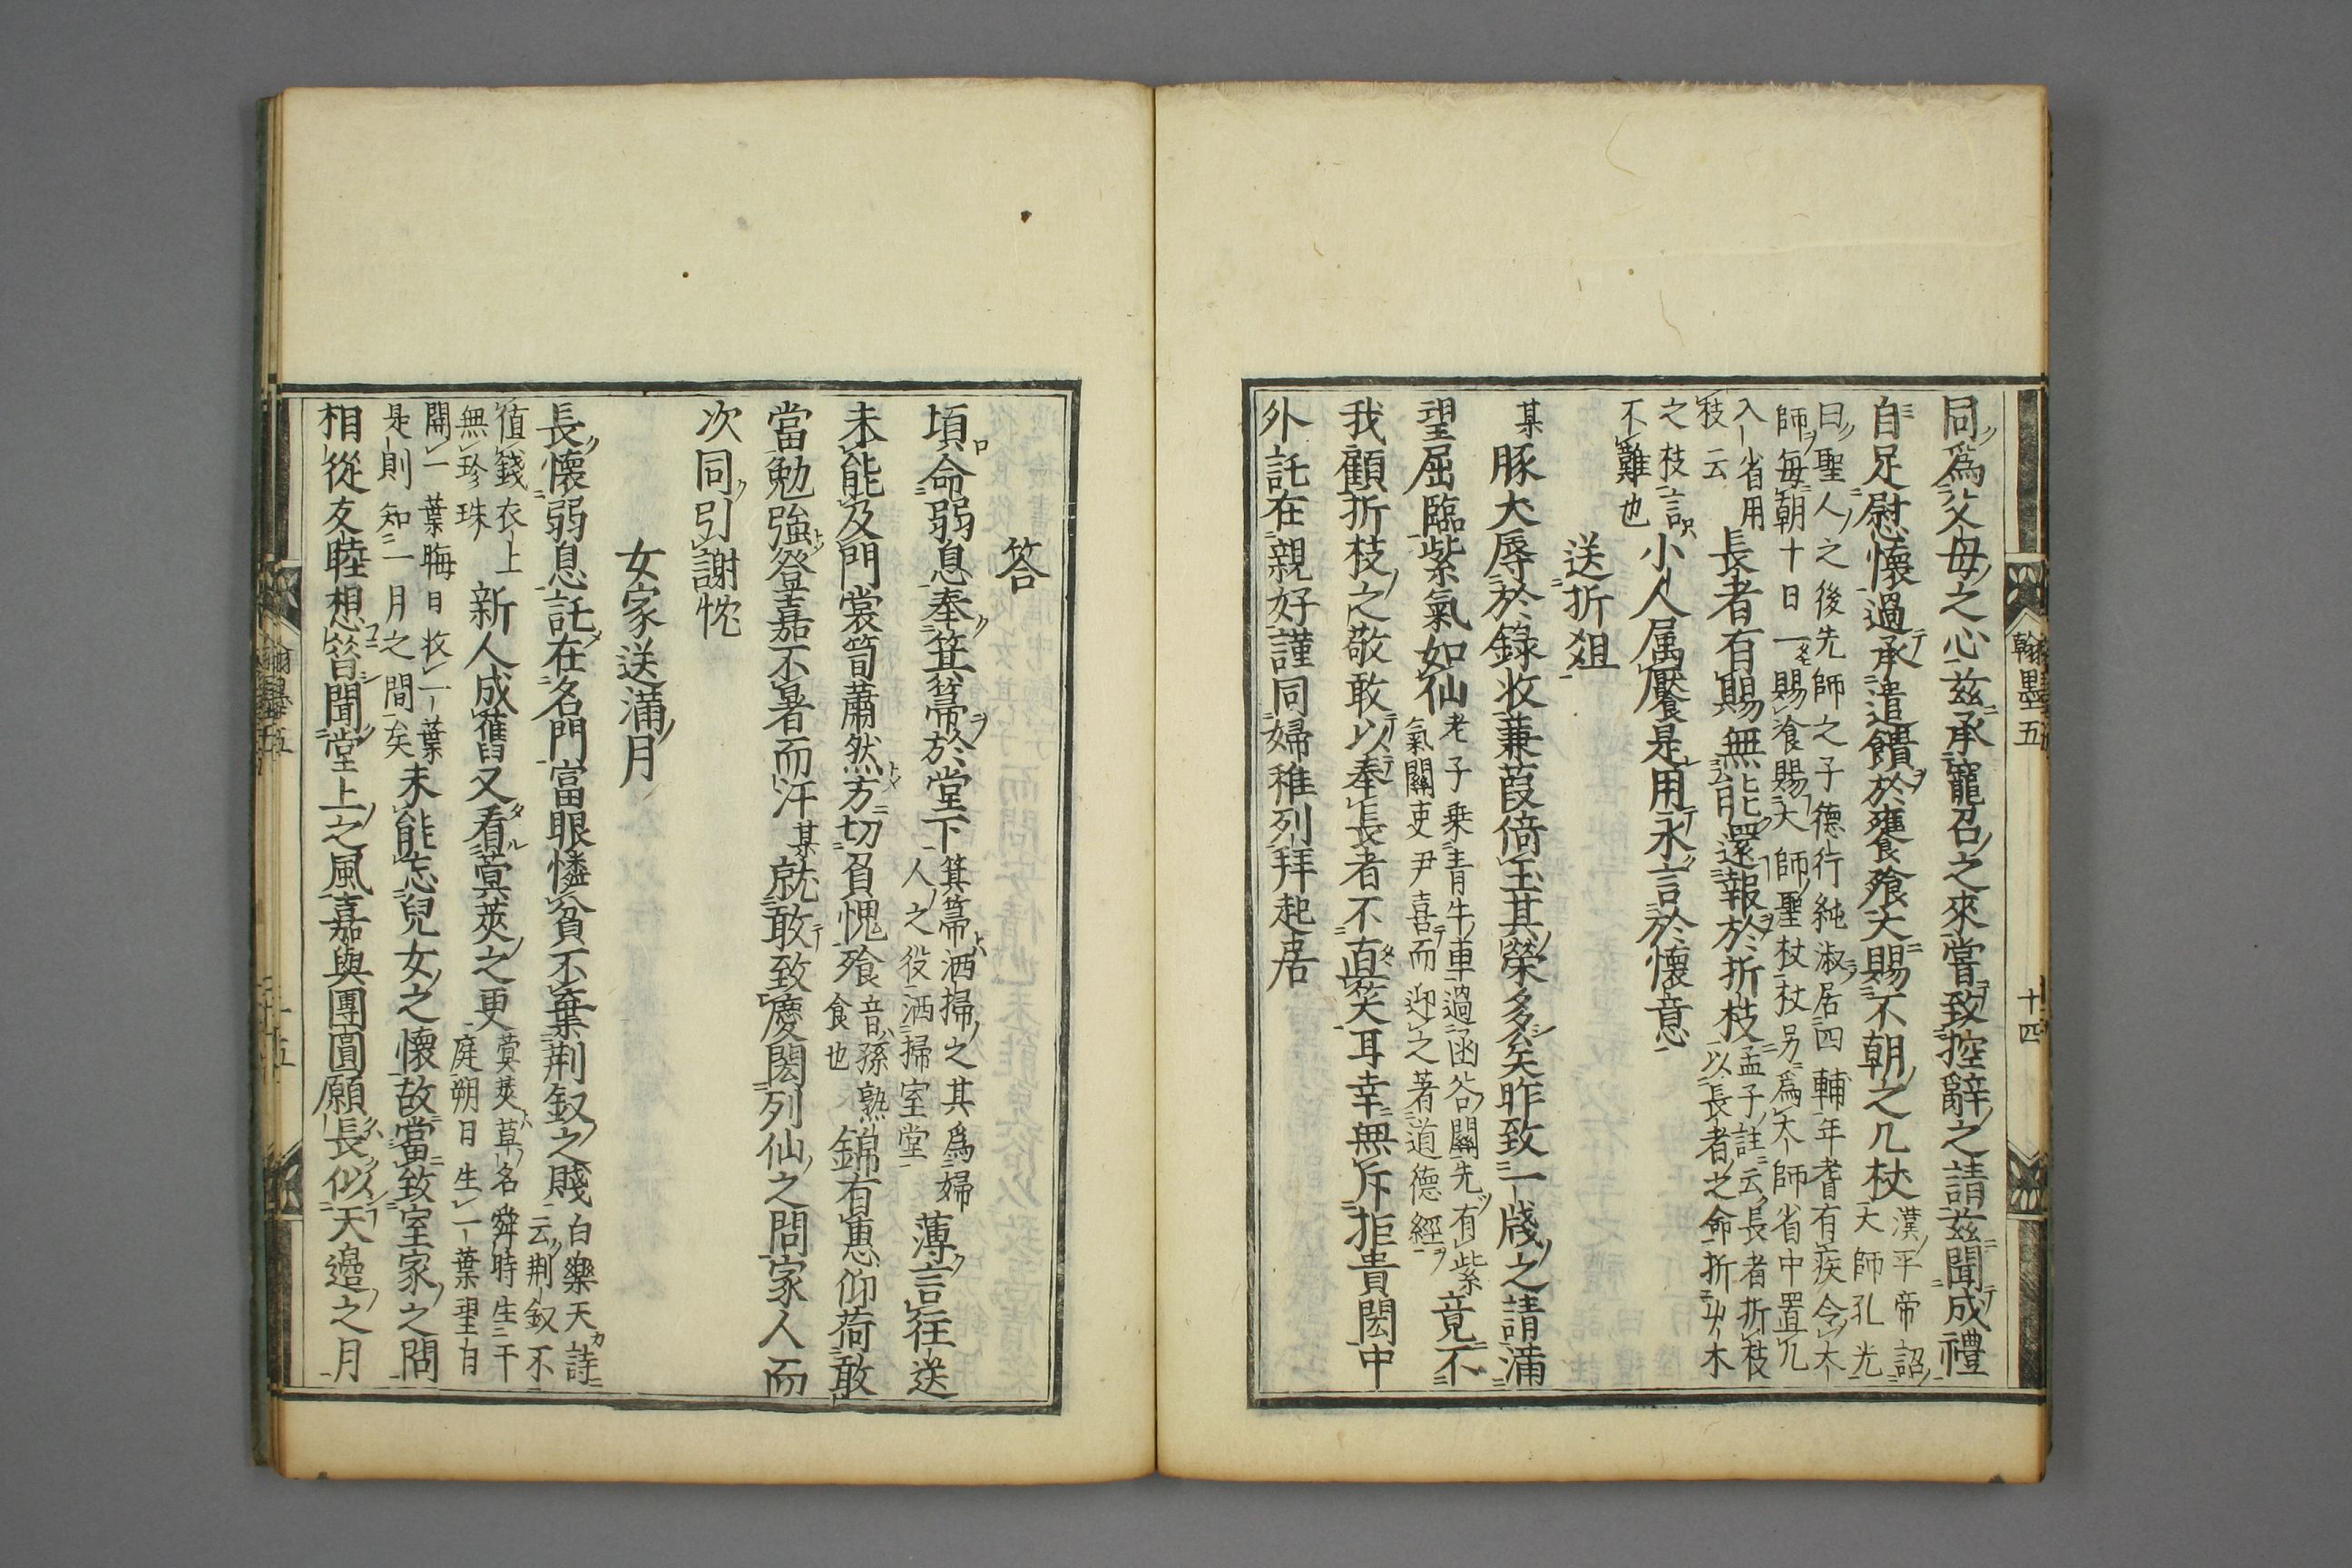 同爲父母之心茲承寵召之來嘗致控辭之請茲聞成禮
自足慰懷過承遣饋於饔飱夫賜不朝之几杖
漢平帝詔
太師孔光
曰聖人之後先師之子德行純淑居四輔年耆有疾令太
師每朝十日一賜飡賜太師聖杖杖另爲太師省中置几
入省用
杖云
長者有賜無能還報於折枝
孟子註云長者折枝
以長者之命折少木
之枝言
不難也
小人属饜是用永言於懷意
送折俎
某豚犬辱於錄收蒹葭倚玉其榮多矣昨致一牋之請蒲
望屈臨紫氣如仙
老子乗青牛車過函谷關先有紫
氣關吏尹喜而迎之著道德經
竟不
我顧折枝之敬敢以奉長者不直笑耳幸無斥拒貴閎中
外託在親好謹同婦稚列拜起居
翰墨五
十四
答
頃命弱息奉箕箒於堂下
箕箒洒掃之其爲婦
人之役洒掃室堂
薄言往送
未能及門裳笥蕭然方切負愧飱
音孫熟
食也
錦有惠仰荷敢
當勉強登嘉不暑而汗某就敢致慶閎列仙之問家人而
次同引謝忱
女家送蒲月
長懷弱息託在名門富眼憐貧不棄荆釵之賤
白樂天詩
云荆釵不
值錢衣上
無珍珠
新人成舊又看蓂莢之更
蓂莢草名舜時生于
庭朔日生一葉望自
開一葉晦日收一葉
是則知一月之間矣
未能忘兒女之懷故當致室家之問
相從友睦想簪聞堂上之風嘉與團圓願長似天邉之月